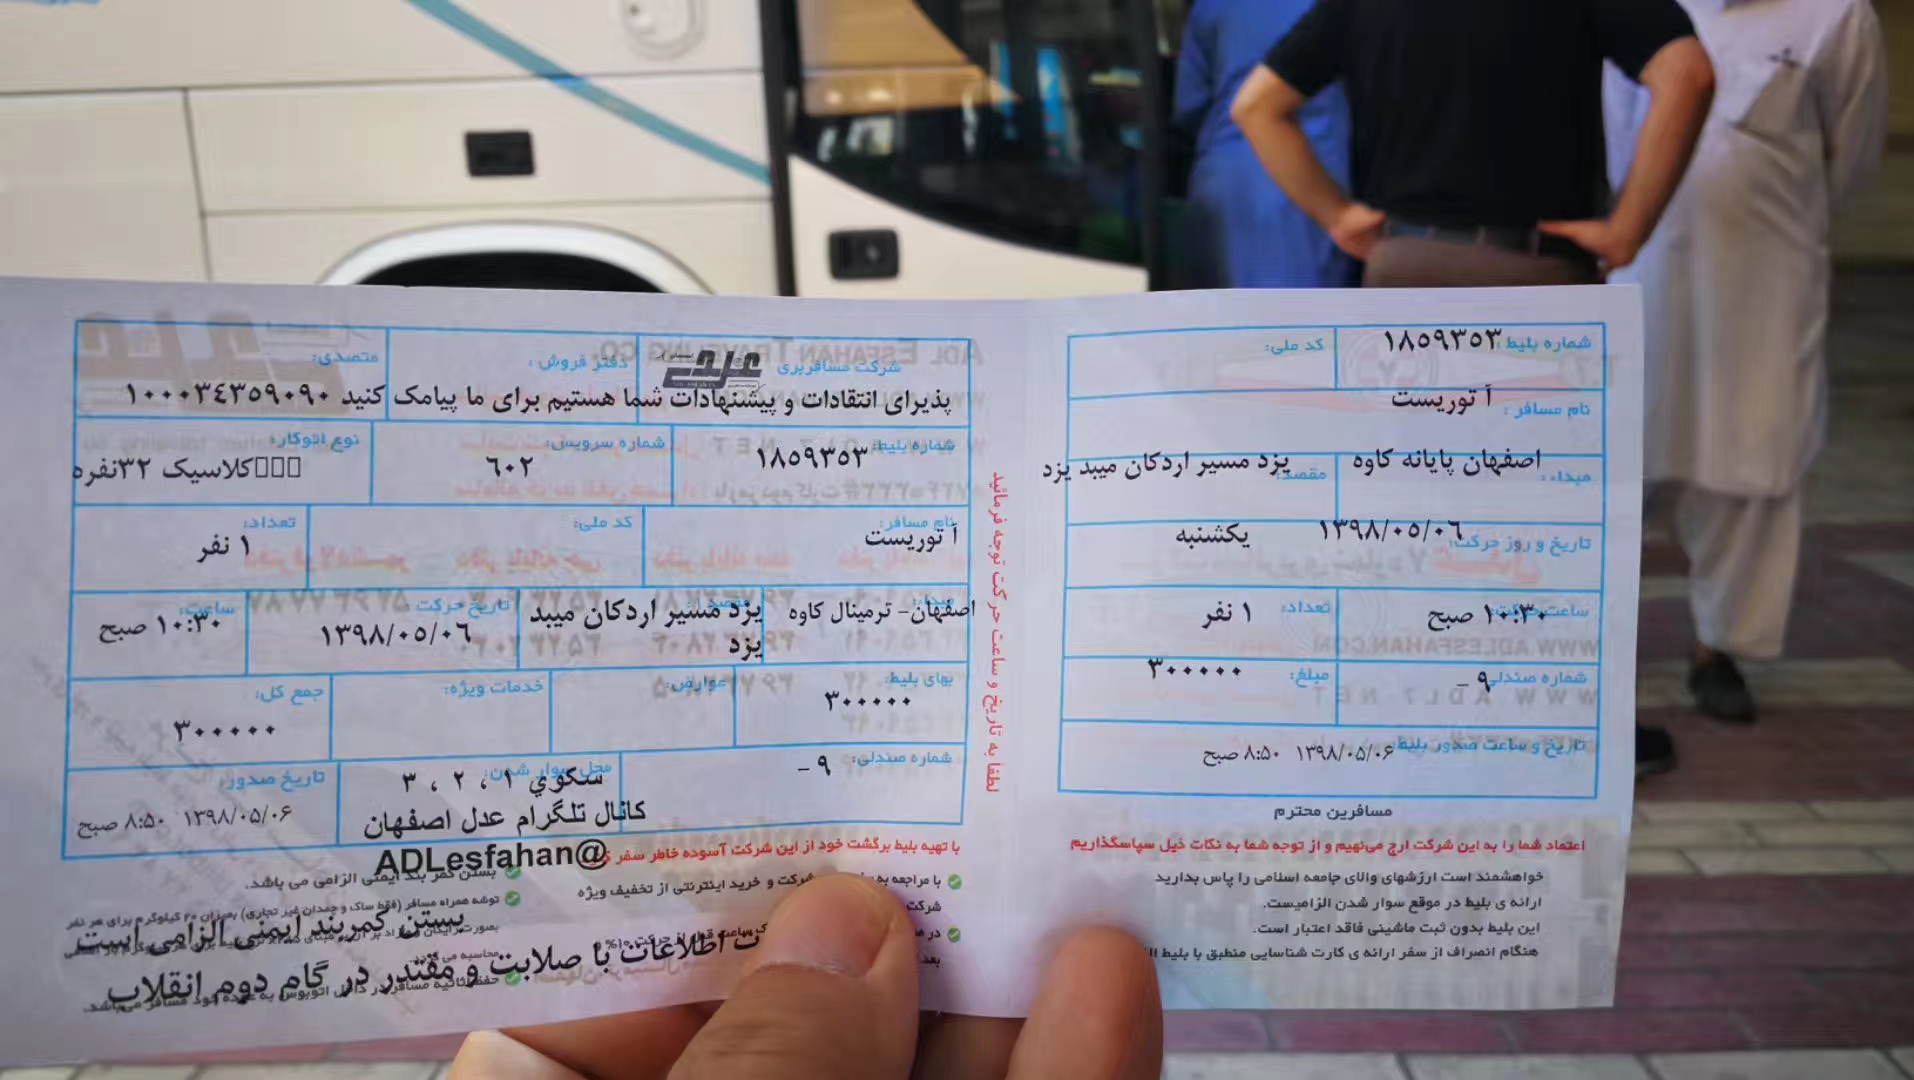 شماره بلیط: ۱۸۵۹۳۵۳
کد ملی:
نام مسافر: آ توریست
مبداء: اصفهان پایانه کاوه
مقصد: یزد مسیر اردکان میبد یزد
تاریخ و روز حرکت: ۱۳۹۸/۰۵/۰۶ یکشنبه
ساعت حرکت: ۱۰:۳۰ صبح
تعداد: ۱ نفر
شماره صندلی: ۹ -
مبلغ: ۳۰۰۰۰۰
تاریخ و ساعت صدور بلیط: ۱۳۹۸/۰۵/۰۶ ۸:۵۰ صبح
مسافرین محترم
اعتماد شما را به این شرکت ارج می‌نهیم و از توجه شما به نکات ذیل سپاسگذاریم
خواهشمند است ارزشهای والای جامعه اسلامی را پاس بدارید
ارائه ی بلیط در موقع سوار شدن الزامیست.
این بلیط بدون ثبت ماشینی فاقد اعتبار است.
هنگام انصراف از سفر ارائه ی کارت شناسایی منطبق با بلیط
لطفا به تاریخ و ساعت حرکت توجه فرمائید
شرکت مسافربری عدل
دفتر فروش:
متصدی:
پذیرای انتقادات و پیشنهادات شما هستیم برای ما پیامک کنید ۱۰۰۰۳۴۳۵۹۰۹۰
شماره بلیط: ۱۸۵۹۳۵۳
شماره سرویس: ۶۰۲
نوع اتوکار: کلاسیک ۳۲نفره
نام مسافر: آ توریست
کد ملی:
تعداد: ۱ نفر
مبداء: اصفهان- ترمینال کاوه
مقصد: یزد مسیر اردکان میبد یزد
تاریخ حرکت: ۱۳۹۸/۰۵/۰۶
ساعت: ۱۰:۳۰ صبح
بهای بلیط: ۳۰۰۰۰۰
عوارض:
خدمات ویژه:
جمع کل: ۳۰۰۰۰۰
شماره صندلی: ۹ -
محل سوار شدن: سکوي ۱ ، ۲ ، ۳
تاریخ صدور: ۱۳۹۸/۰۵/۰۶ ۸:۵۰ صبح
کانال تلگرام عدل اصفهان
@ADLesfahan
با تهیه بلیط برگشت خود از این شرکت آسوده خاطر سفر
با مراجعه به شرکت و خرید اینترنتی از تخفیف ویژه
شرکت
بستن کمر بند ایمنی الزامی می باشد.
توشه همراه مسافر (فقط ساک و چمدان غیر تجاری) بمیزان ۲۰ کیلوگرم برای هر نفر
بستن کمربند ایمنی الزامی است
اطلاعات با صلابت و مقتدر در گام دوم انقلاب